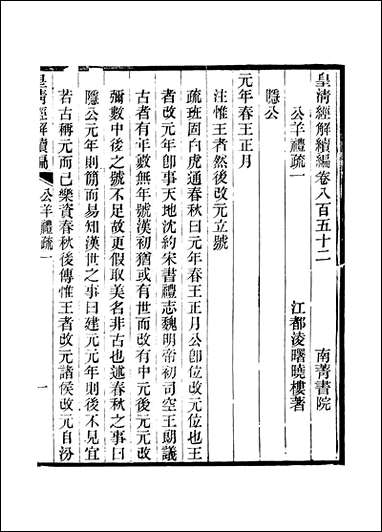 皇淸經解續編卷八百五十二 南菁書院
公羊禮疏一 江都淩曙曉樓著
隱公
元年春王正月
注惟王者然後改元立號
疏班固白虎通春秋曰元年春王正月公卽位改元位也王
者改元年卽事天地沈約宋書禮志魏明帝初司空王朗議
古者有年數無年號漢初猶或有世而改有中元後元元改
彌數中後之號不足故更假取美名非古也述春秋之事曰
隱公元年則簡而易知漢世之事曰建元元年則後不見宜
若古稱元而已樂資春秋後傳惟王者改元諸侯改元自汾
皇淸經解續編 公羊禮疏一 一